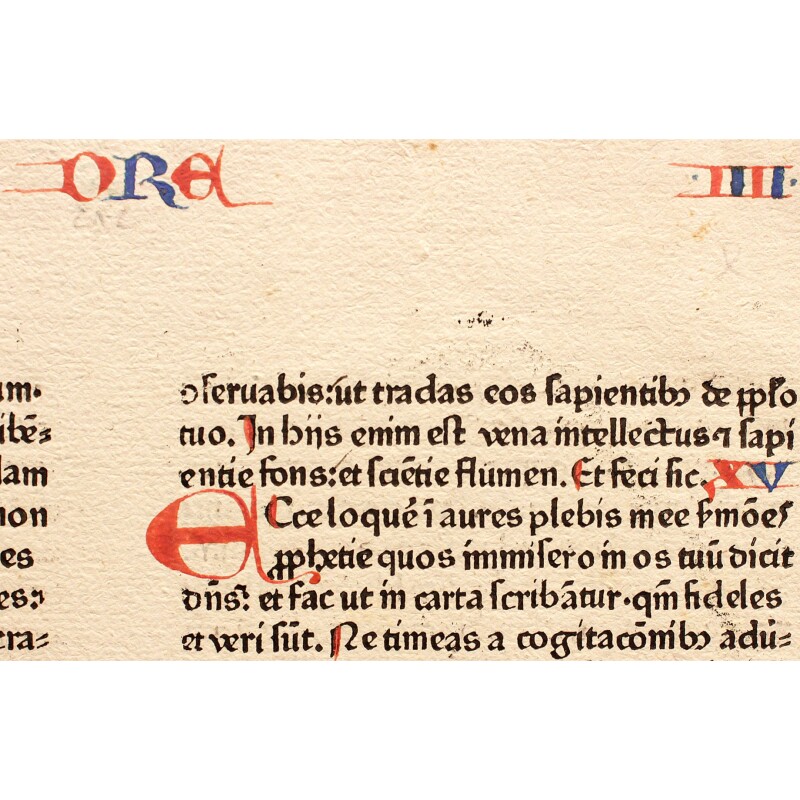 ORE
IIII
um.
ibē=
dam
non
es
es:
cra=
ɔseruabis: ut tradas eos sapientibꝫ de ppl̓o
tuo. In hijs enim est vena intellectus ⁊ sapi
entie fons: et sciētie flumen. Et feci sic. XV
ECce loquē ī aures plebis mee s̓mōes
ꝓphetie quos immisero in os tuū dicit
dn̄s: et fac ut in carta scribātur. qm̄ fideles
et veri sūt. Ne timeas a cogitacōnibꝫ adū=